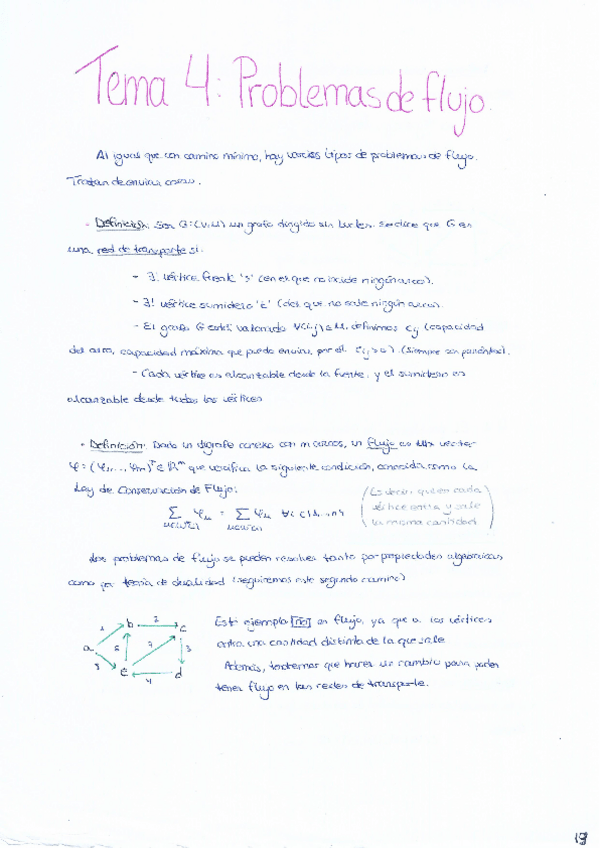 Tema 4: Problemas de flujo.
Al igual que con camino mínimo, hay varios tipos de problemas de flujo.
Tratan de enviar cosas.
- Definición: Sea G=(V,U) un grafo dirigido sin bucles. Se dice que G es
una red de transporte si:
- ∃! vértice fuente 's' (en el que no incide ningún arco).
- ∃! vértice sumidero 't' (del que no sale ningún arco).
- El grafo G está valorado ∀(i,j)∈U, definimos cij (capacidad
del arco, capacidad máxima que puedo enviar por él cij>0) (siempre son positivas).
- Cada vértice es alcanzable desde la fuente, y el sumidero es
alcanzable desde todos los vértices
- Definición: Dado un digrafo conexo con m arcos, un flujo es un vector
φ=(φ1,...,φm)ᵗ∈ℝᵐ que verifica la siguiente condición, conocida como la
Ley de Conservación de Flujo:
(Es decir, que en cada
vértice entra y sale
la misma cantidad)
Σ φu = Σ φu ∀i∈{1,...,n}
Los problemas de flujo se pueden resolver tanto por propiedades algebraicas
como por teoría de dualidad (seguiremos este segundo camino)
Este ejemplo no es flujo, ya que a los vértices
entra una cantidad distinta de la que sale
Además, tendremos que hacer un cambio para poder
tener flujo en las redes de transporte.
b 2 c
a 6 7 3
3 e 4 d
19